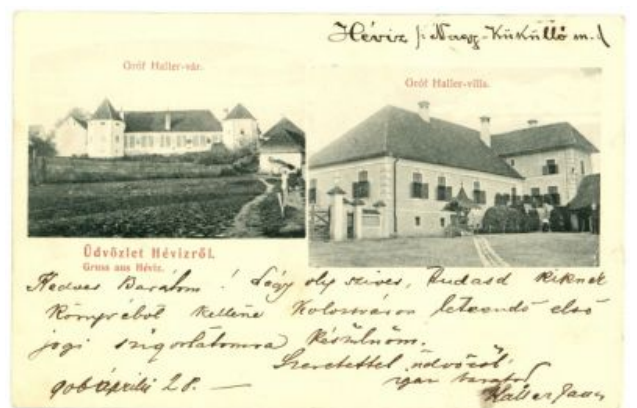 Hévíz (Nagy-Küküllő m.)
Gróf Haller-vár.
Gróf Haller-villa.
Üdvözlet Hévízről.
Gruss aus Hévíz.
Kedves Barátom! Légy oly szíves, tudasd kiknek
könyvéből kellene Kolozsváron leteendő első
jogi szigorlatomra készülnöm.
Szeretettel üdvözöl
igaz barátod
906 április 28. — Haller János